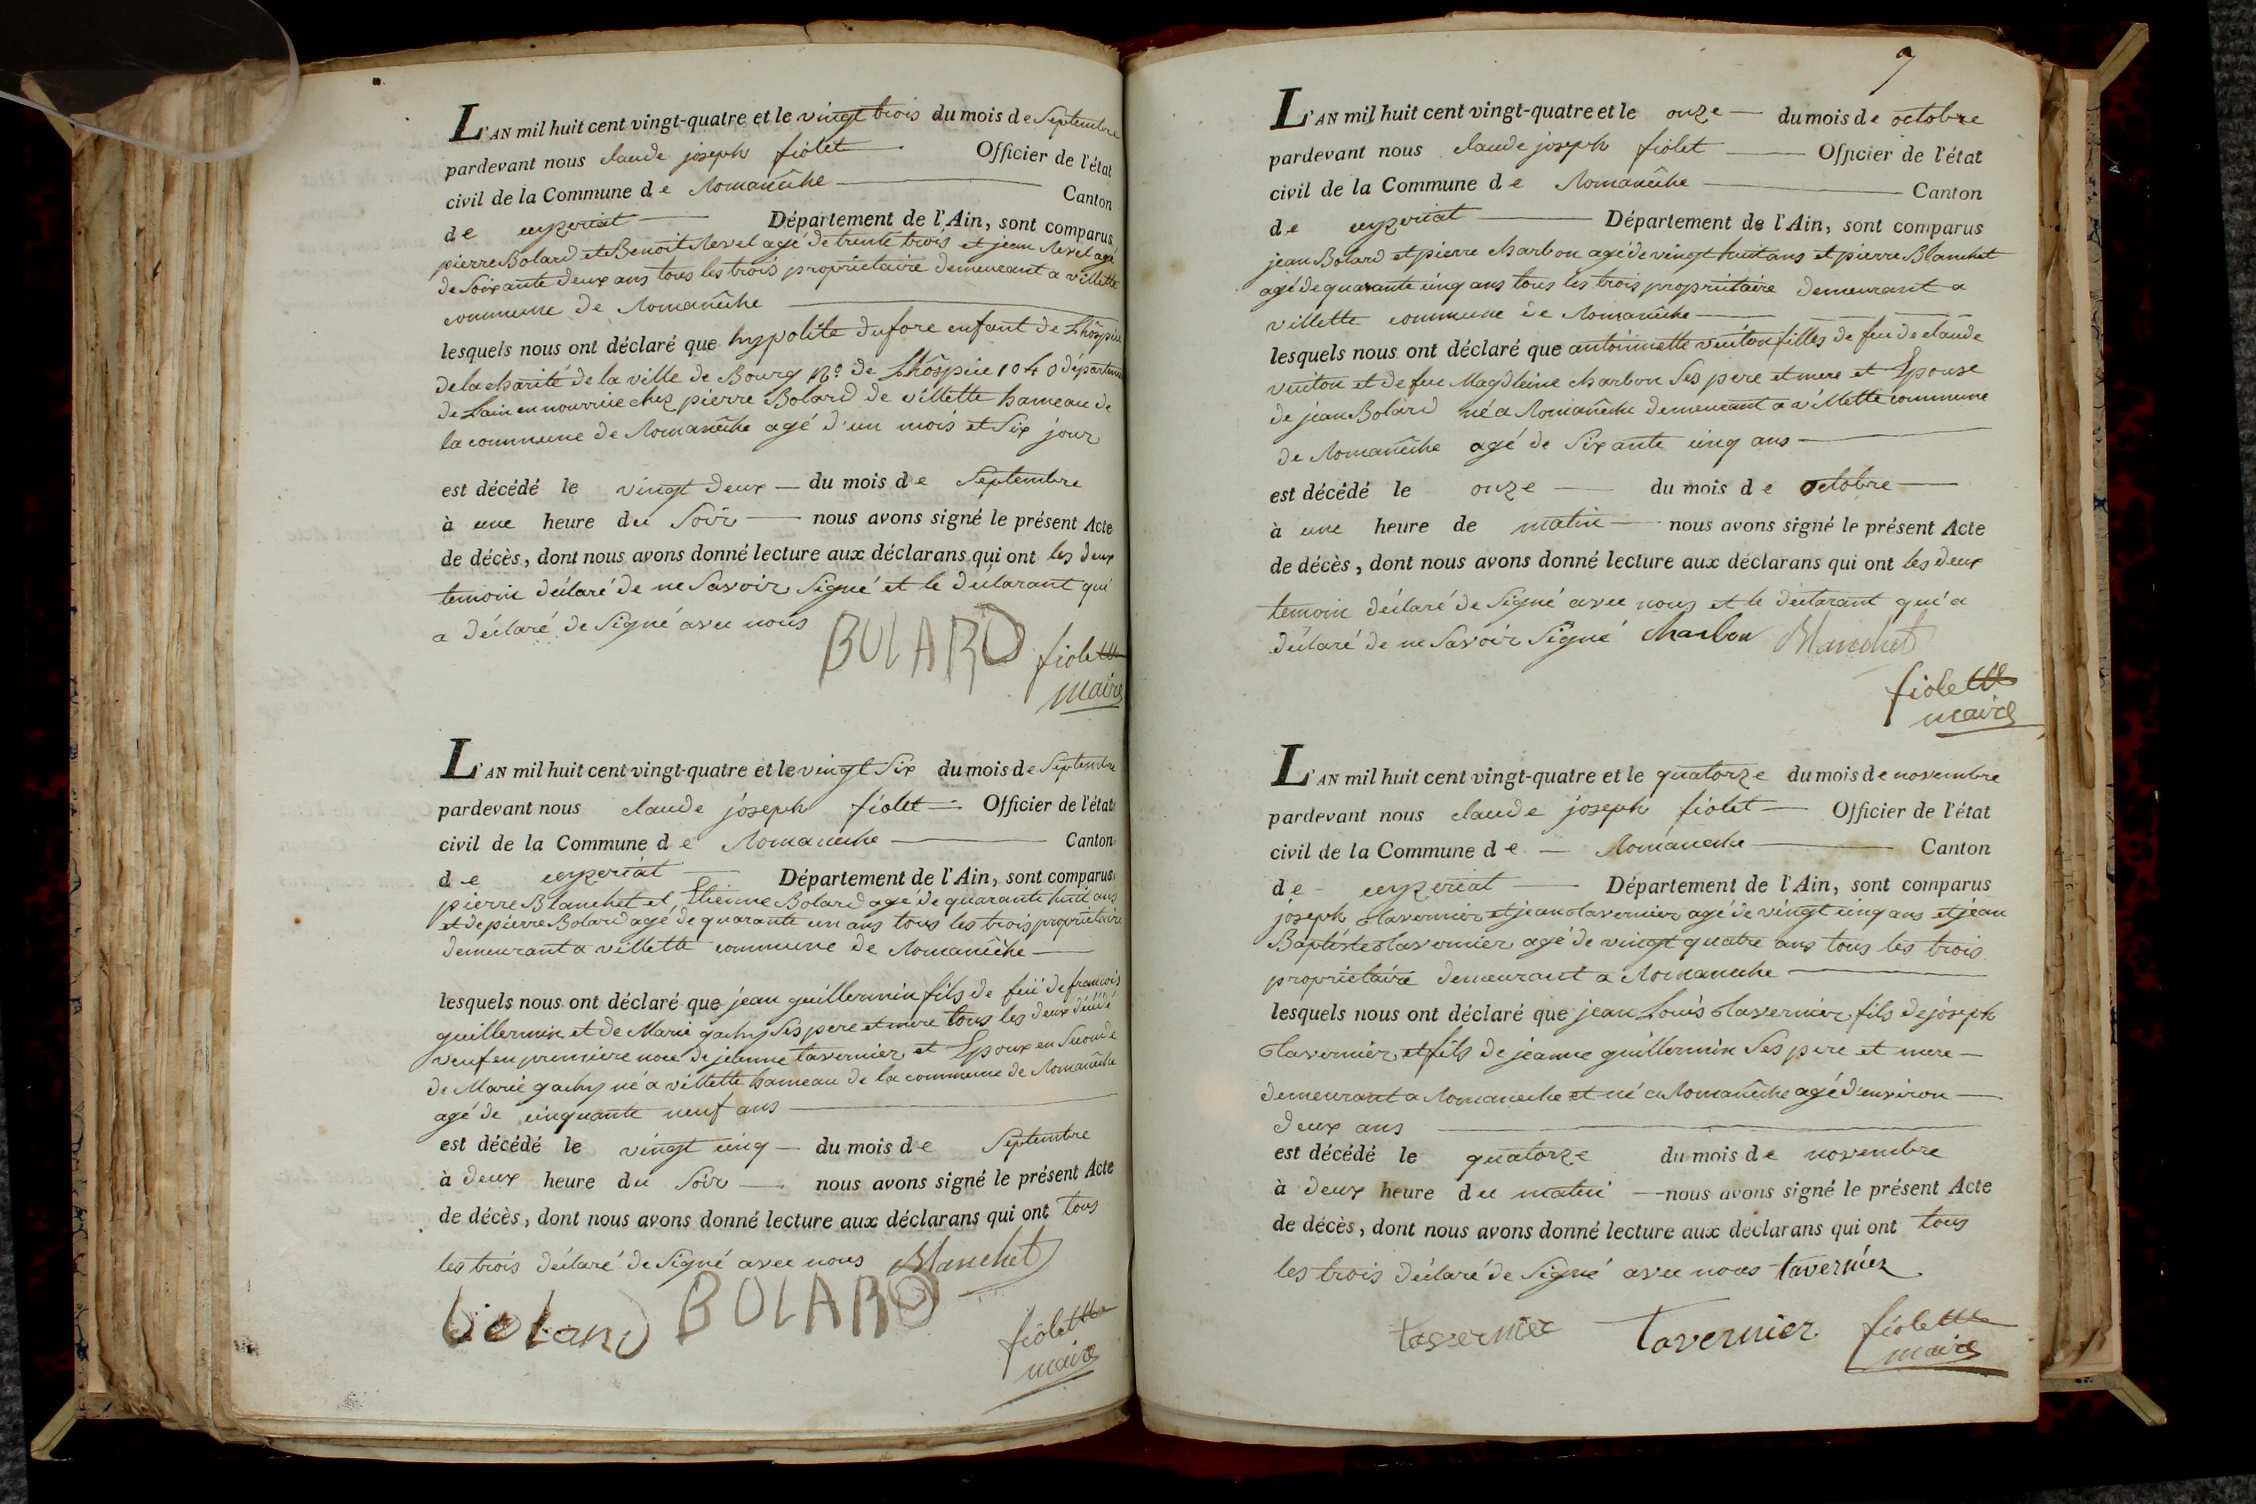 L'AN mil huit cent vingt-quatre et le vingt trois du mois de Septembre
pardevant nous claude joseph fiolet Officier de l'état
civil de la Commune de Romanêche Canton
de ceyzeriat Département de l'Ain, sont comparus
pierre Bolard et Benoit Revel agé de trente trois et jean Revel agé
de Soixante deux ans tous les trois proprietaire demeurant a villette
commune de Romanêche
lesquels nous ont déclaré que hypolite dufore enfant de Lhôspice
de la charité de la ville de Bourg No. de Lhôspice 1040 départeme
de Lain en nourrice chez pierre Bolard de villette hameau de
la commune de Romanêche agé d'un mois et Six jour
est décédé le vingt deux du mois de Septembre
à une heure du Soir nous avons signé le présent Acte
de décès, dont nous avons donné lecture aux déclarans qui ont les deux
temoin déclaré de ne Savoir Signé et le declarant qui
a déclaré de Signé avec nous BOLARD fiolet
maire
L'AN mil huit cent vingt-quatre et le vingt Six du mois de Septembre
pardevant nous claude joseph fiolet Officier de l'état
civil de la Commune de Romaneche Canton
de ceyzeriat Département de l'Ain, sont comparus
pierre Blanchet et Etienne Bolard agé de quarante huit ans
et de pierre Bolard agé de quarante un ans tous les trois proprietaire
demeurant a villette commune de Romanêche
lesquels nous ont déclaré que jean guillermin fils de feü de francois
guillermin et de Marie gachy Ses pere et mere tous les deux décédé
veuf en premiere noce de jeanne tavernier et Epoux en Seconde
de Marie gachy né a villette hameau de la commune de Romanêche
agé de cinquante neuf ans
est décédé le vingt cinq du mois de Septembre
à deux heure du Soir nous avons signé le présent Acte
de décès, dont nous avons donné lecture aux déclarans qui ont tous
les trois déclaré de Signé avec nous Blanchet
bolard BOLARD fiolet
maire
9
L'AN mil huit cent vingt-quatre et le onze du mois de octobre
pardevant nous claude joseph fiolet Officier de l'état
civil de la Commune de Romanêche Canton
de ceyzeriat Département de l'Ain, sont comparus
jean Bolard et pierre charbon agé de vingt huit ans et pierre Blanchet
agé de quarante cinq ans tous les trois proprietaire demeurant a
villette commune de Romanêche
lesquels nous ont déclaré que antoinnette veuiton filles de feu de claude
vuiton et de feu Magdleine charbon Ses pere et mere et Epouse
de jean Bolard né a Romanêche demeurant a villette commune
de Romanêche agé de Sixante cinq ans
est décédé le onze du mois de octobre
à une heure de matin nous avons signé le présent Acte
de décès, dont nous avons donné lecture aux déclarans qui ont les deux
temoin déclaré de Signé avec nous et le declarant qui a
déclaré de ne Savoir Signé charbon Blanchet
fiolet
maire
L'AN mil huit cent vingt-quatre et le quatorze du mois de novembre
pardevant nous claude joseph fiolet Officier de l'état
civil de la Commune de Romaneche Canton
de ceyzeriat Département de l'Ain, sont comparus
joseph tavernier et jean tavernier agé de vingt cinq ans et jean
Baptiste tavernier agé de vingt quatre ans tous les trois
proprietaire demeurant a Romaneche
lesquels nous ont déclaré que jean Louis tavernier fils de joseph
tavernier et fils de jeanne guillermin Ses pere et mere
demeurant a Romaneche et né a Romanêche agé d'environ
deux ans
est décédé le quatorze du mois de novembre
à deux heure du matin nous avons signé le présent Acte
de décès, dont nous avons donné lecture aux déclarans qui ont tous
les trois déclaré de Signé avec nous tavernier
tavernier tavernier fiolet
maire